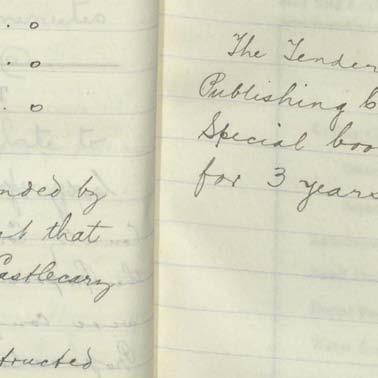 . 0
. 0
. 0
nded by
that
Castlecary
tructed
The Tender
Publishing
Special boo
for 3 years